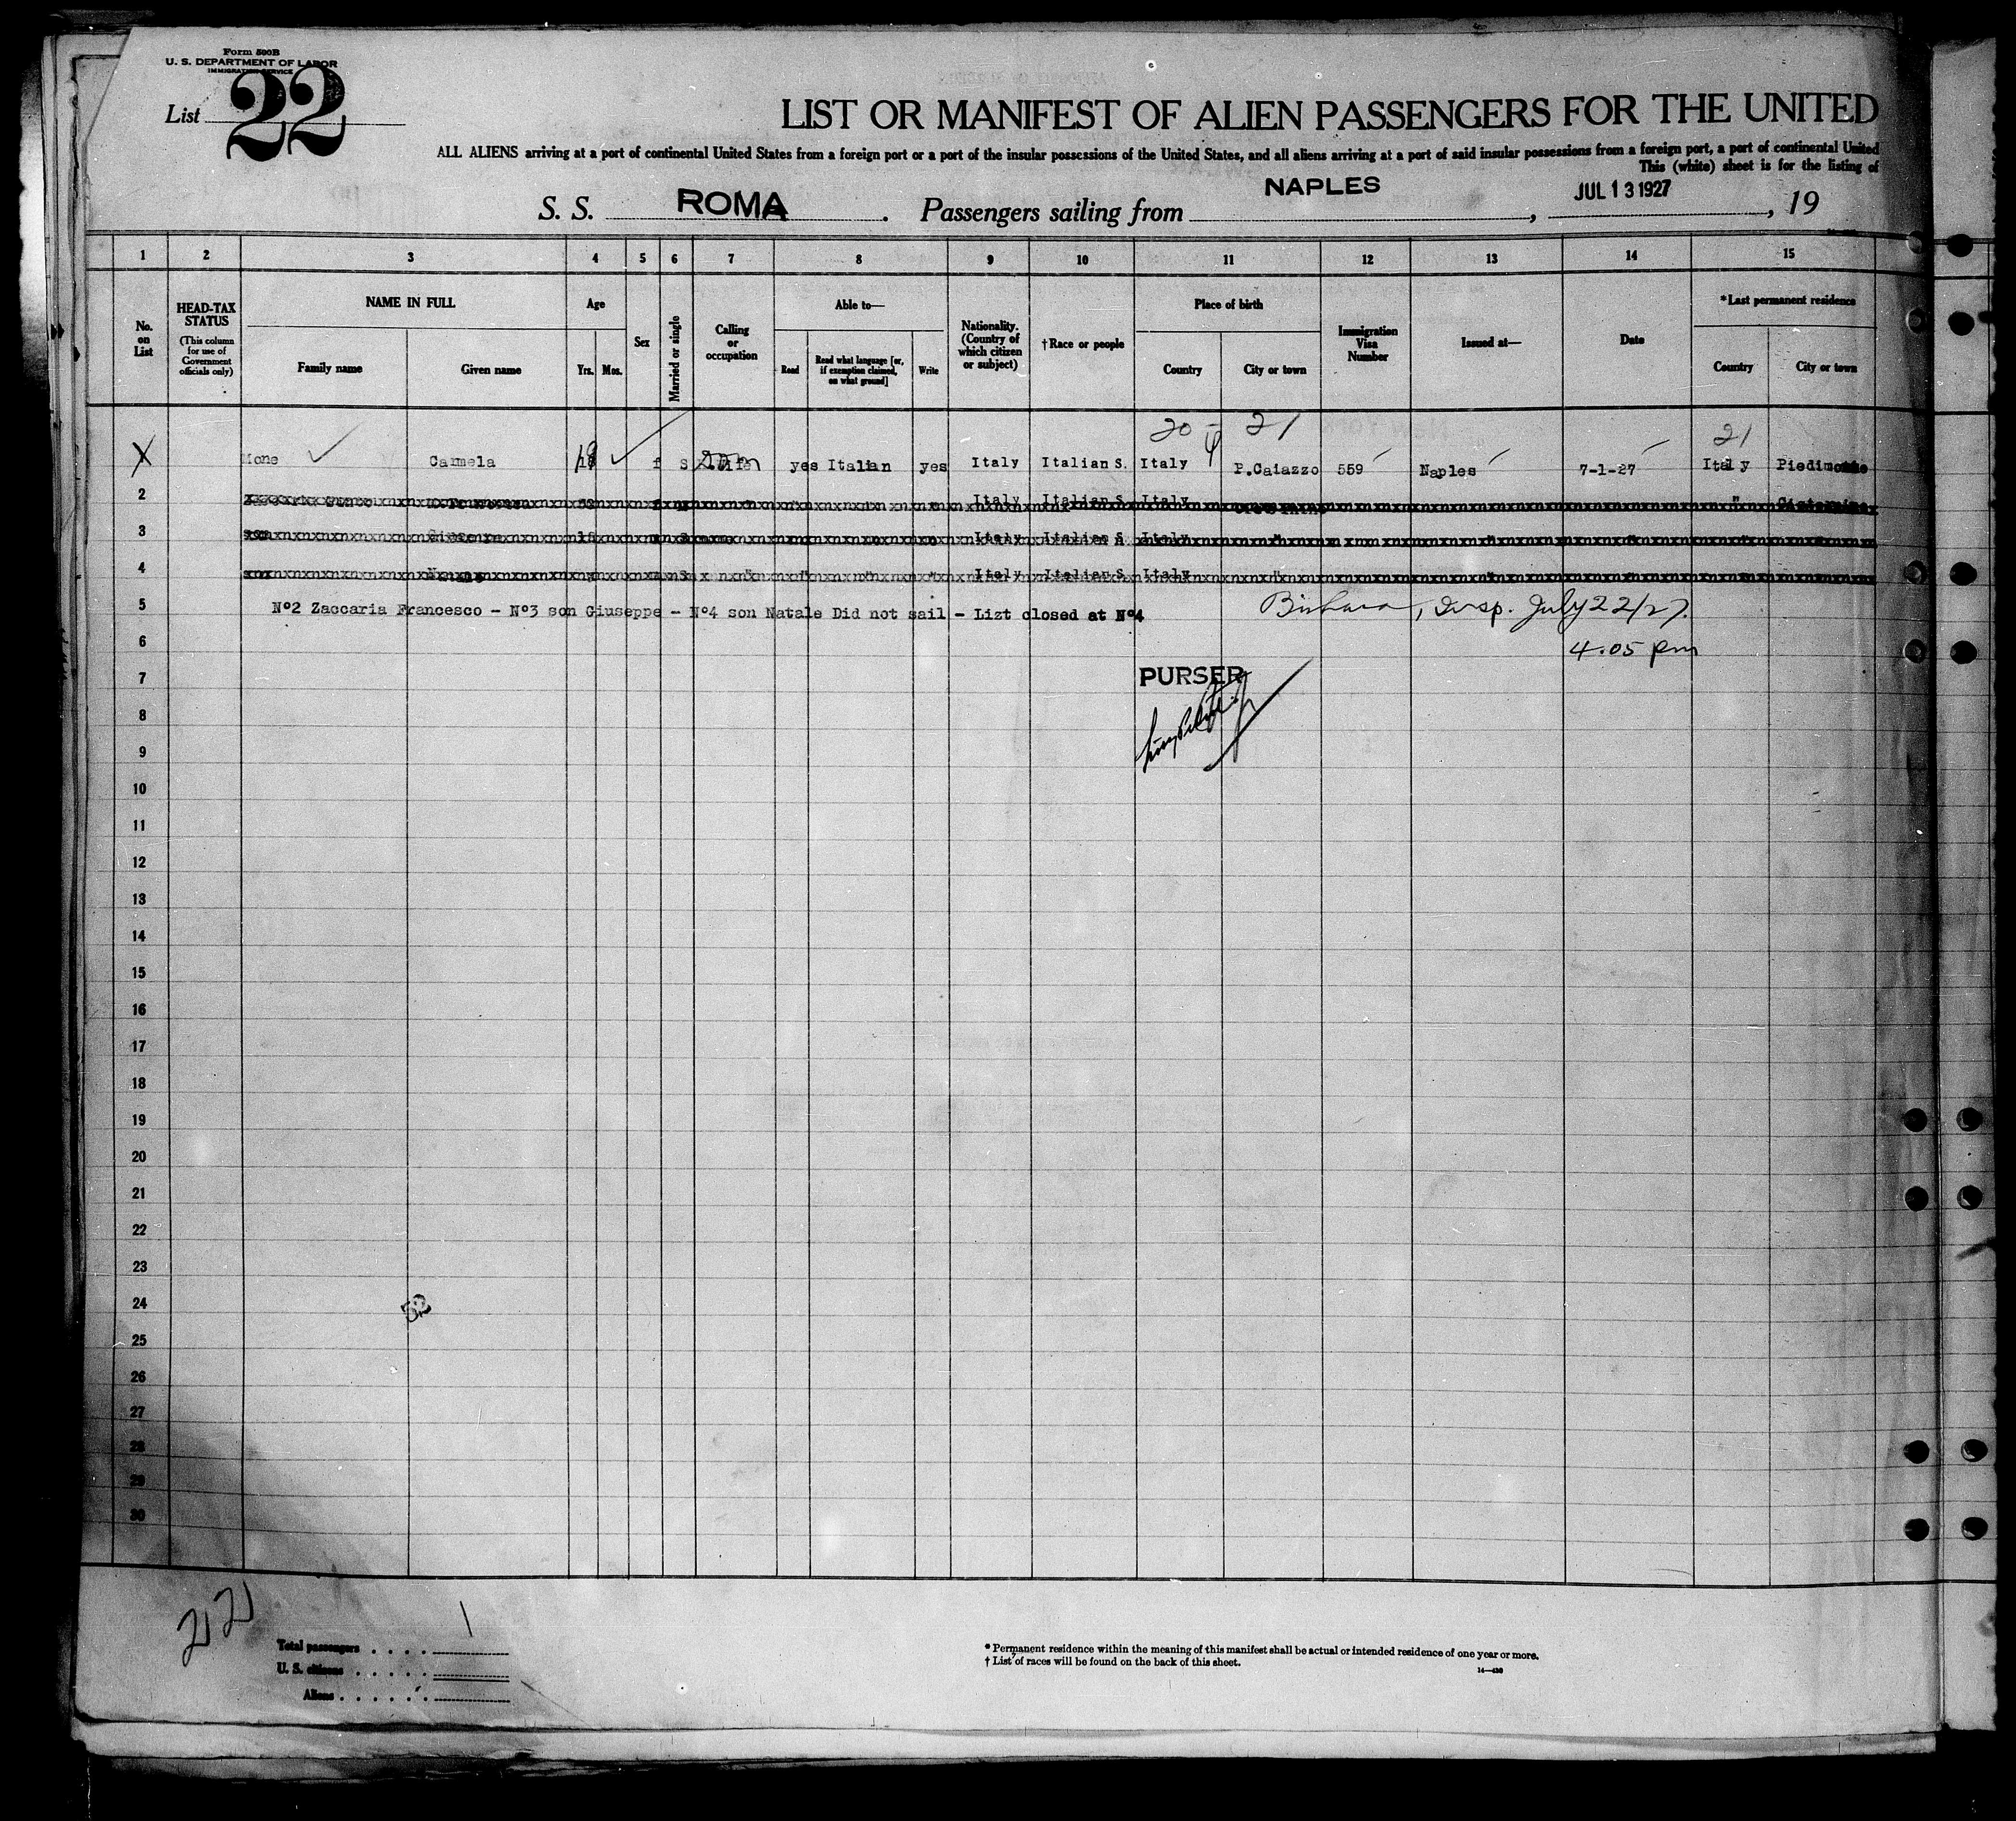 Form 500B
U. S. DEPARTMENT OF LABOR
IMMIGRATION SERVICE
List 22
LIST OR MANIFEST OF ALIEN PASSENGERS FOR THE UNITED
ALL ALIENS arriving at a port of continental United States from a foreign port or a port of the insular possessions of the United States, and all aliens arriving at a port of said insular possessions from a foreign port, a port of continental United
This (white) sheet is for the listing of
S. S. ROMA . Passengers sailing from NAPLES , JUL 13 1927 , 19
1 2 3 4 5 6 7 8 9 10 11 12 13 14 15
No. on List
HEAD-TAX STATUS
(This column for use of Government officials only)
NAME IN FULL
Family name Given name
Age
Yrs. Mos.
Sex
Married or single
Calling or occupation
Able to—
Read Read what language [or, if exemption claimed, on what ground] Write
Nationality. (Country of which citizen or subject)
†Race or people
Place of birth
Country City or town
Immigration Visa Number
Issued at—
Date
*Last permanent residence
Country City or town
20 - 21 21
X Mone Carmela f s yes Italian yes Italy Italian S. Italy P.Caiazzo 559 Naples 7-1-27 Italy Piedimonte
2 Italy Italian S. Italy "
3 son Giuseppe Italy Italian S. Italy
4 Italy Italian S. Italy
5 Nº2 Zaccaria Francesco - Nº3 son Giuseppe - Nº4 son Natale Did not sail - Lizt closed at Nº4 , Insp. July 22/27.
6 4.05 pm
7 PURSER
8
9
10
11
12
13
14
15
16
17
18
19
20
21
22
23
24
25
26
27
28
29
30
52
Total passengers . . . . 1
U. S. citizens . . . . .
Aliens . . . . . .
* Permanent residence within the meaning of this manifest shall be actual or intended residence of one year or more.
† List of races will be found on the back of this sheet.
14—430